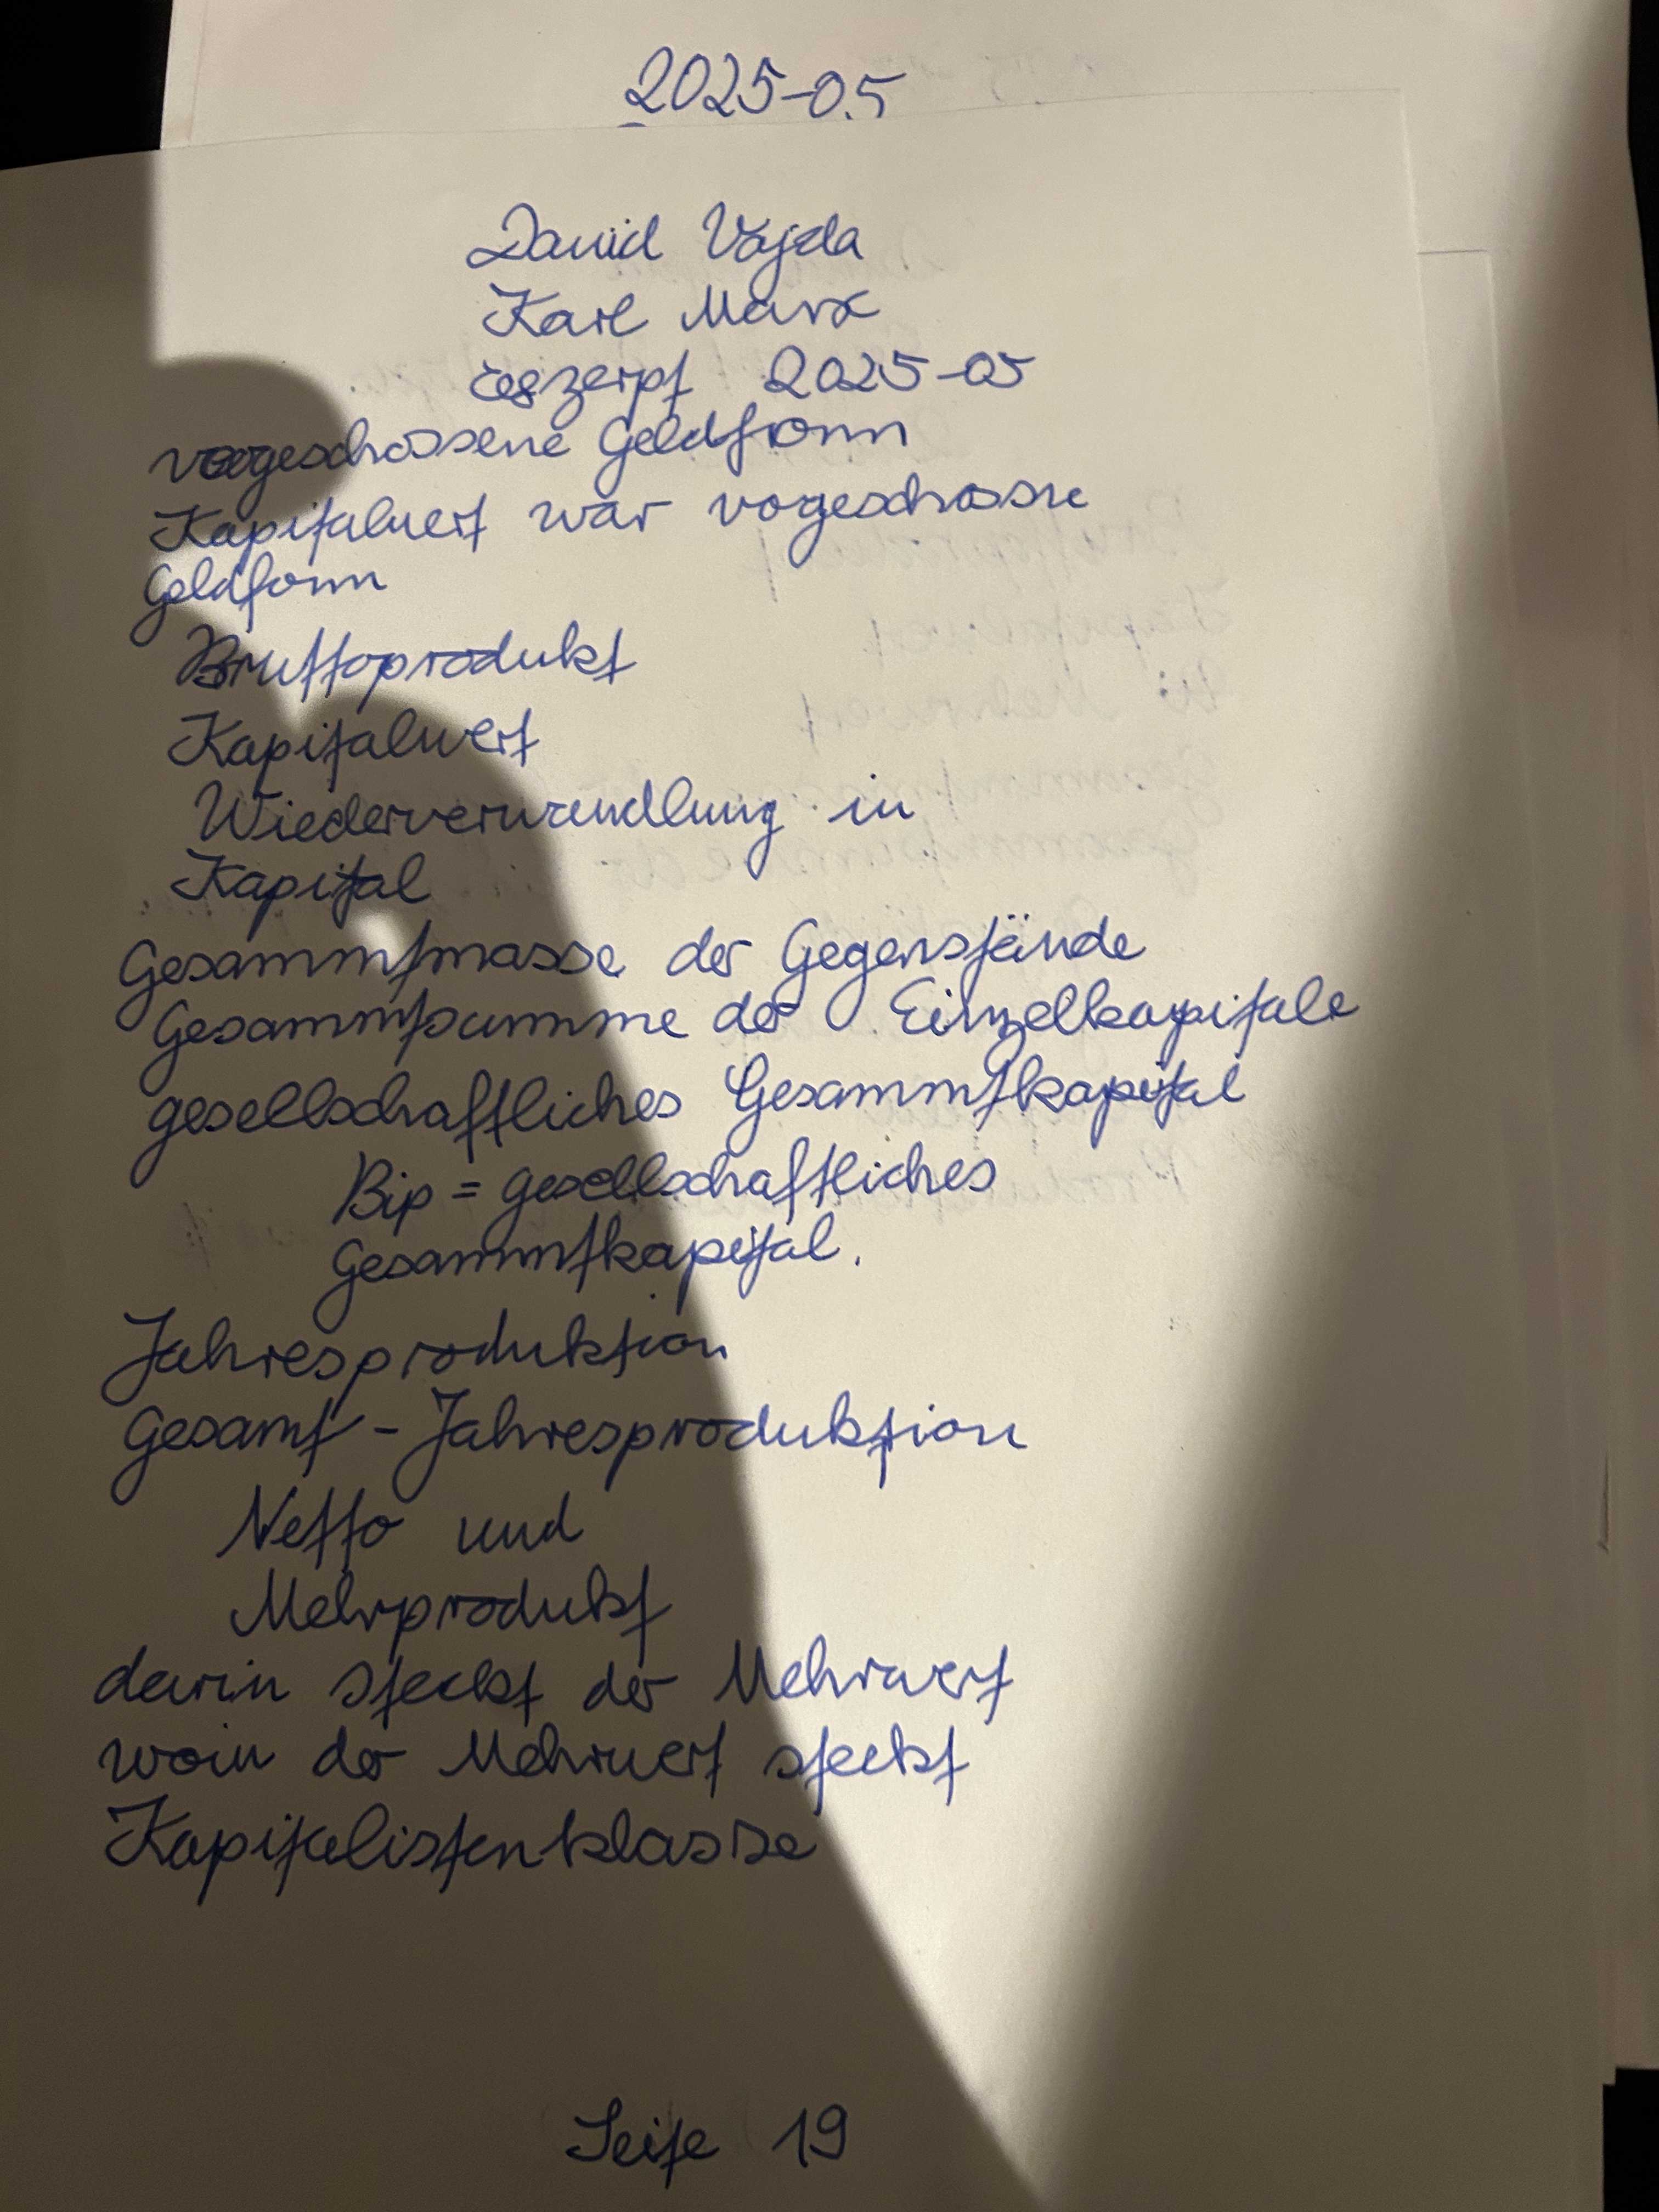 2025-05
David Vajda
Karl Marx
Exzerpt 2025-05
vorgeschossene Geldform
Kapitalwert war vogeschossne
Geldform
Bruttoprodukt
Kapitalwert
Wiederverwandlung in
Kapital
Gesammtmasse der Gegenstände
Gesammtsumme der Einzelkapitale
gesellschaftliches Gesammtkapital
Bip = gesellschaftliches
Gesammtkapital.
Jahresproduktion
Gesamt - Jahresproduktion
Netto und
Mehrprodukt
darin steckt der Mehrwert
woin der Mehrwert steckt
Kapitalistenklasse
Seite 19